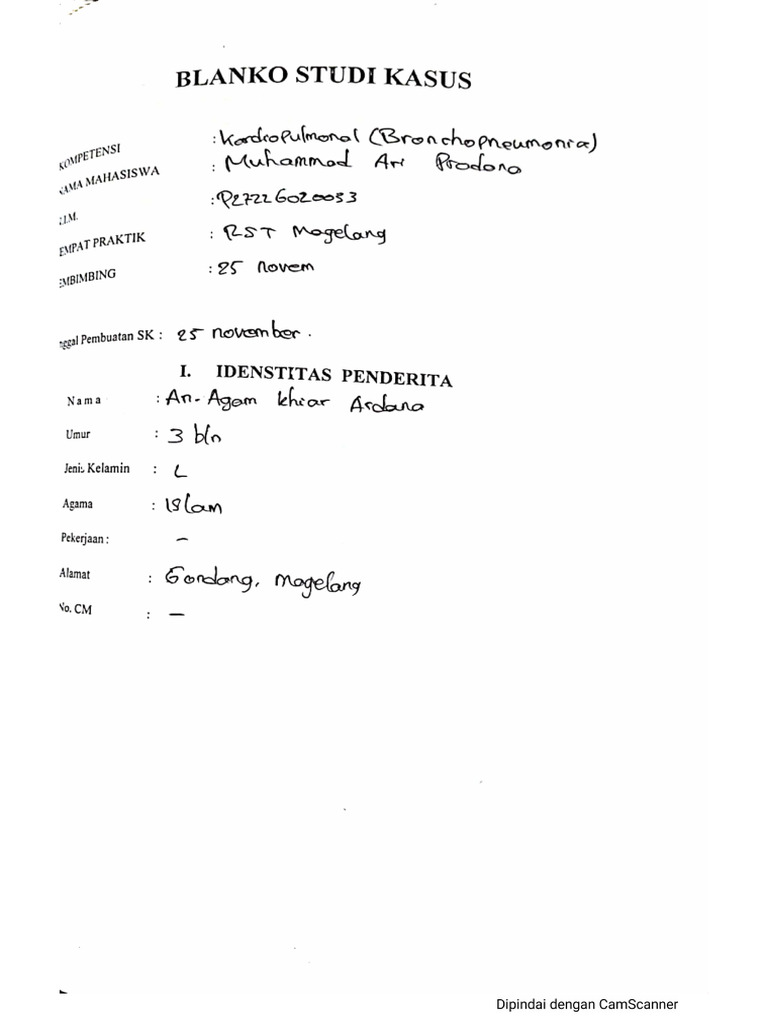 BLANKO STUDI KASUS
KOMPETENSI : Kardiopulmonal (Bronchopneumonia)
NAMA MAHASISWA : Muhammad Ari Pradana
I.M. : P27226020053
EMPAT PRAKTIK : RST Magelang
EMBIMBING : 25 novem
nggal Pembuatan SK : 25 november.
I. IDENSTITAS PENDERITA
Nama : An. Agam khiar Ardana
Umur : 3 bln
Jenis Kelamin : L
Agama : Islam
Pekerjaan : -
Alamat : Gondang, Magelang
No. CM : -
Dipindai dengan CamScanner